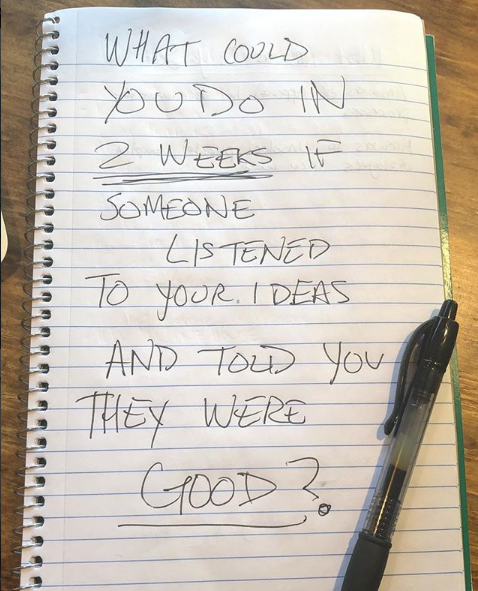 WHAT COULD
YOU DO IN
2 WEEKS IF
SOMEONE
LISTENED
TO YOUR IDEAS
AND TOLD YOU
THEY WERE
GOOD?